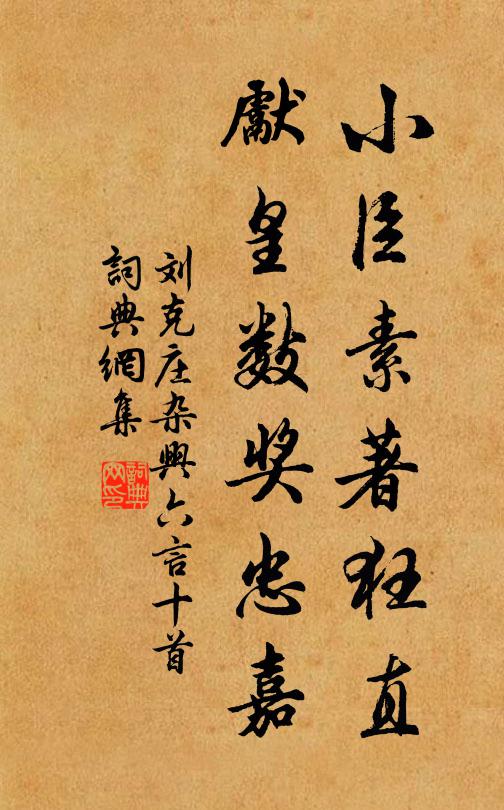 小臣素著狂直
獻皇數奖忠嘉
刘克庄杂興六言十首
詞典網集
詞典網印